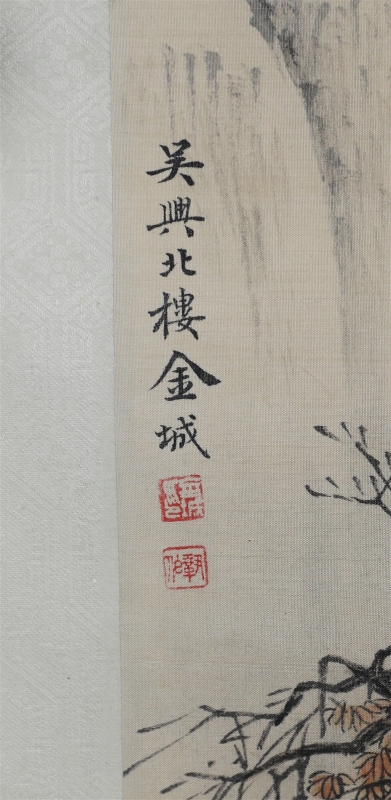 吴興北樓金城